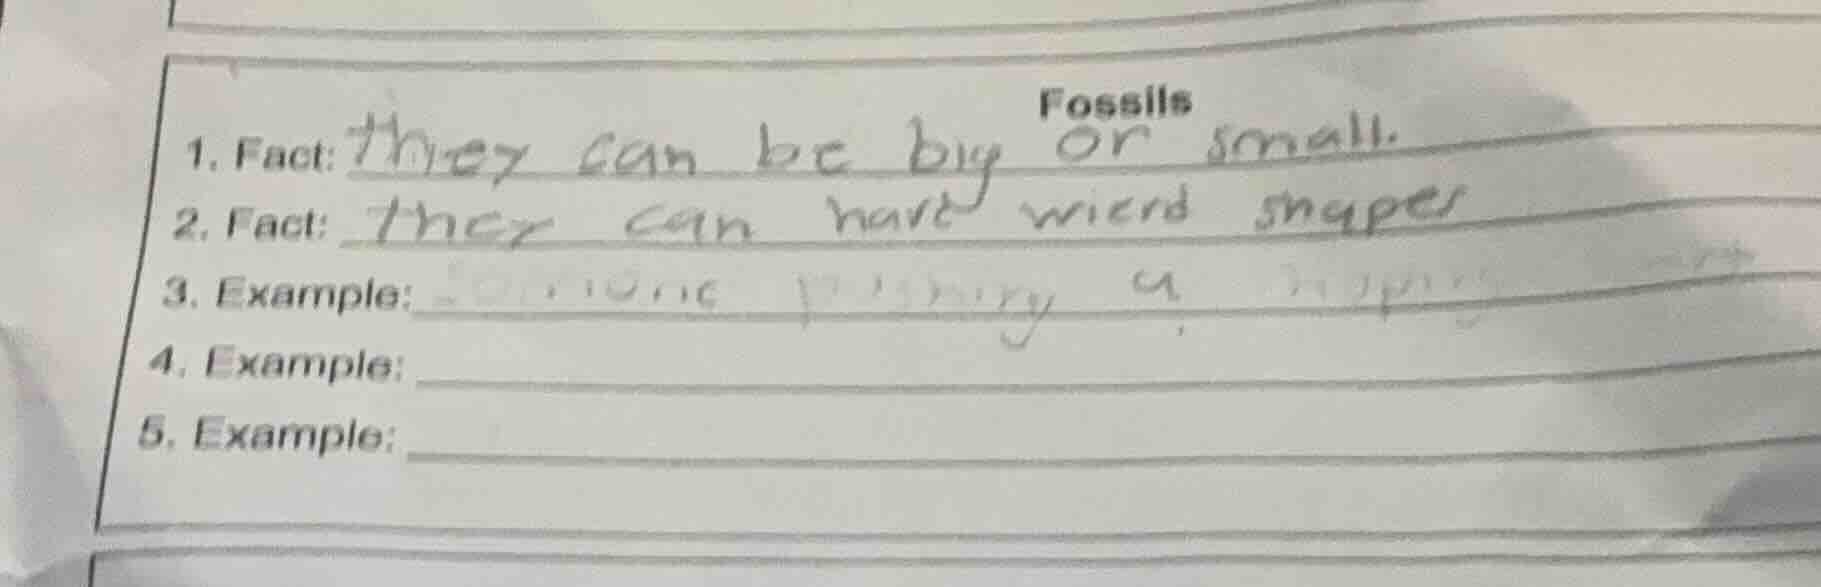 Fossils
1. Fact: they can be big or small.
2. Fact: they can have wierd shapes
3. Example: a
4. Example:
5. Example: